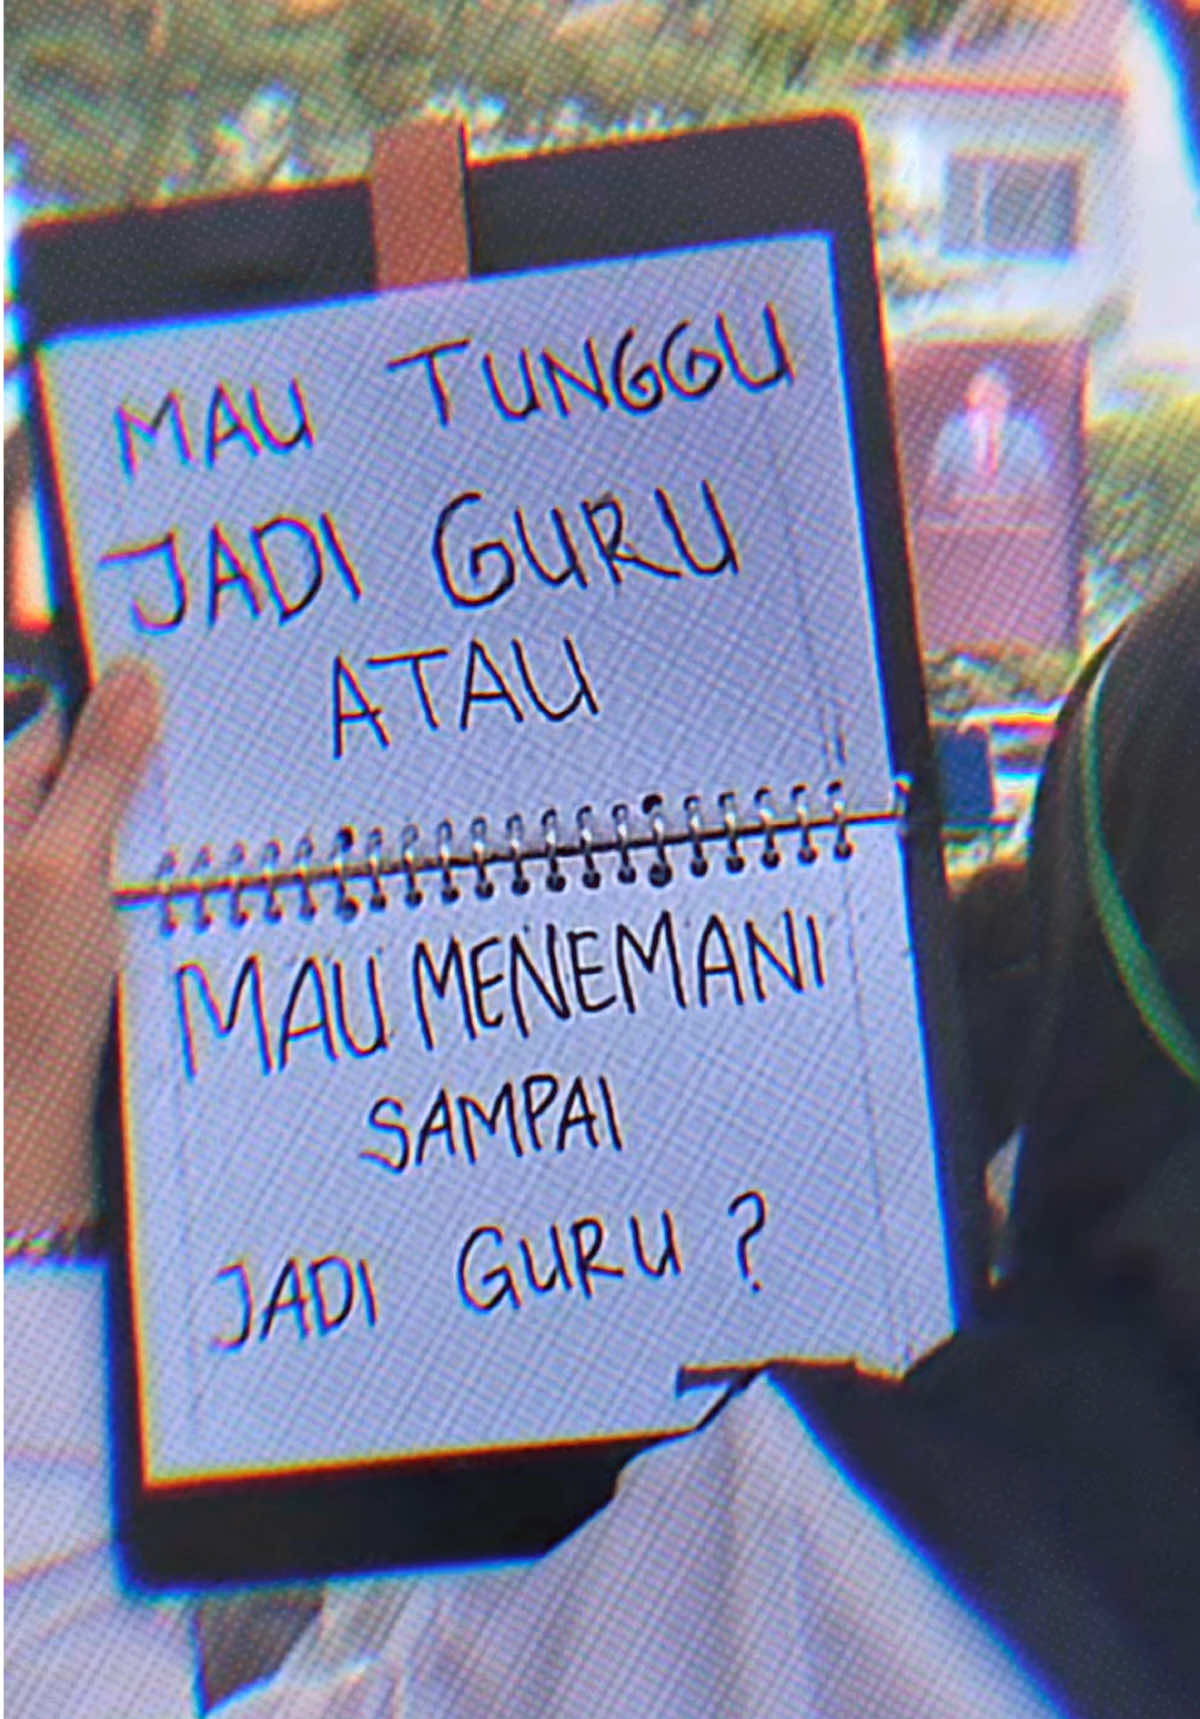 MAU TUNGGU
JADI GURU
ATAU
MAU MENEMANI
SAMPAI
JADI GURU ?